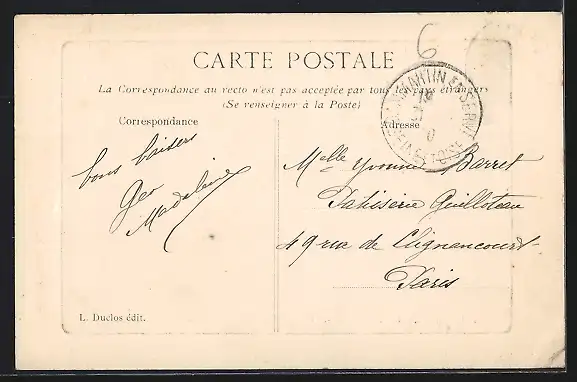 6
CARTE POSTALE
La Correspondance au recto n'est pas acceptée par tous les pays étrangers
(Se renseigner à la Poste)
Correspondance
Adresse
bons baisers
Geo
Madeleine
Melle Yvonne Barret
Patisserie Guilloteau
49 rue de Clignancourt
Paris
L. Duclos édit.